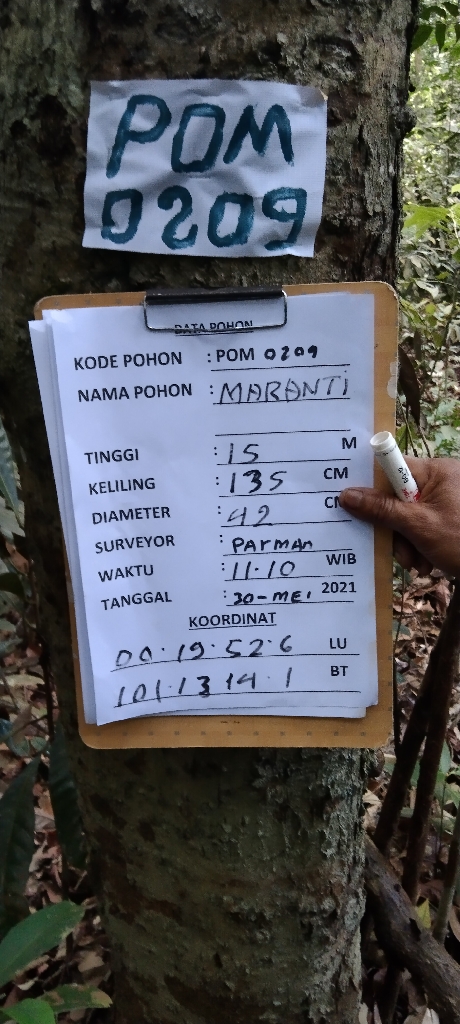 POM
0209
DATA POHON
KODE POHON : POM 0209
NAMA POHON : MARANTI
TINGGI : 15 M
KELILING : 135 CM
DIAMETER : 42 CM
SURVEYOR : PARMAN
WAKTU : 11.10 WIB
TANGGAL : 30-MEI 2021
KOORDINAT
00.19.52.6 LU
101.13 14.1 BT